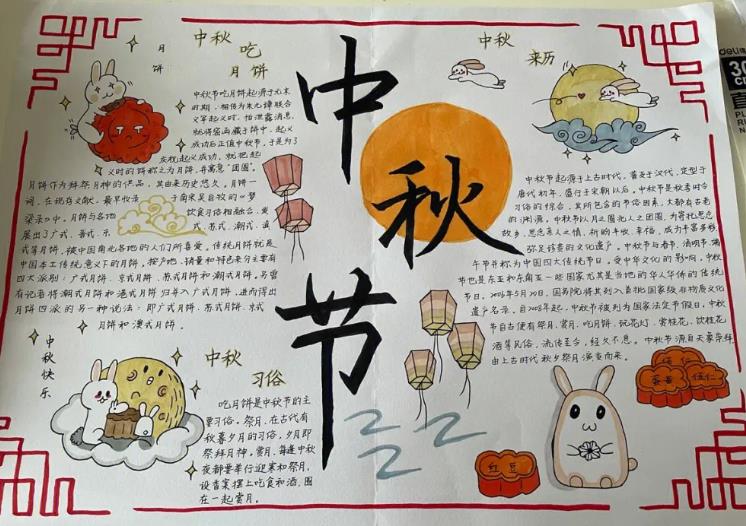 中秋节
中秋
吃
月饼
月
饼
中秋节吃月饼起源于元末
时期，相传为朱元璋联合
义军起义时，怕泄露消息，
就将密函藏于饼中，起义
成功后正值中秋节，于是为了
庆祝起义成功，就把起
义时的饼称之为月饼，并寓意"团圆"。
月饼作为拜祭月神的供品，其由来历史悠久。月饼一
词，在现有文献，最早收录
于南宋吴自牧的《梦
梁录》中，月饼与各地
饮食习俗相融合，发
展出广式、晋式、京
式、苏式、潮式、滇
式等月饼，被中国南北各地的人们所喜爱。传统月饼就是
中国本土传统意义下的月饼，按产地、销量和特色来分主要有
四大派别：广式月饼、京式月饼、苏式月饼和潮式月饼。另需
有记者将潮式月饼和港式月饼归并入广式月饼，进而得出
月饼四派的另一种说法：即广式月饼、苏式月饼、京式
月饼和滇式月饼。
中秋快乐
中秋
习俗
吃月饼是中秋节的主
要习俗。祭月，在古代有
秋暮夕月的习俗，夕月即
祭拜月神。赏月，每逢中秋
夜都要举行迎寒和祭月，
设香案摆上吃食和酒，围
在一起赏月。
中秋
来历
中秋节起源于上古时代，普及于汉代，定型于
唐代初年，盛行于宋朝以后。中秋节是秋季时令
习俗的综合，其所包含的节俗因素，大都有古老
的渊源。中秋节以月之圆兆人之团圆，为寄托思念
故乡，思念亲人之情，祈盼丰收、幸福，成为丰富多彩、
弥足珍贵的文化遗产。中秋节与春节、清明节、端
午节并称为中国四大传统节日。受中华文化的影响，中秋
节也是东亚和东南亚一些国家尤其是当地的华人华侨的传统
节日。2006年5月20日，国务院将其列入首批国家级非物质文化
遗产名录。自2008年起，中秋节被列为国家法定节假日。中秋
节自古便有祭月、赏月、吃月饼、玩花灯、赏桂花、饮桂花
酒等民俗，流传至今，经久不息。中秋节源自天象崇拜，
由上古时代秋夕祭月演变而来。
伍仁
莲蓉
伍仁
红豆
deli
30